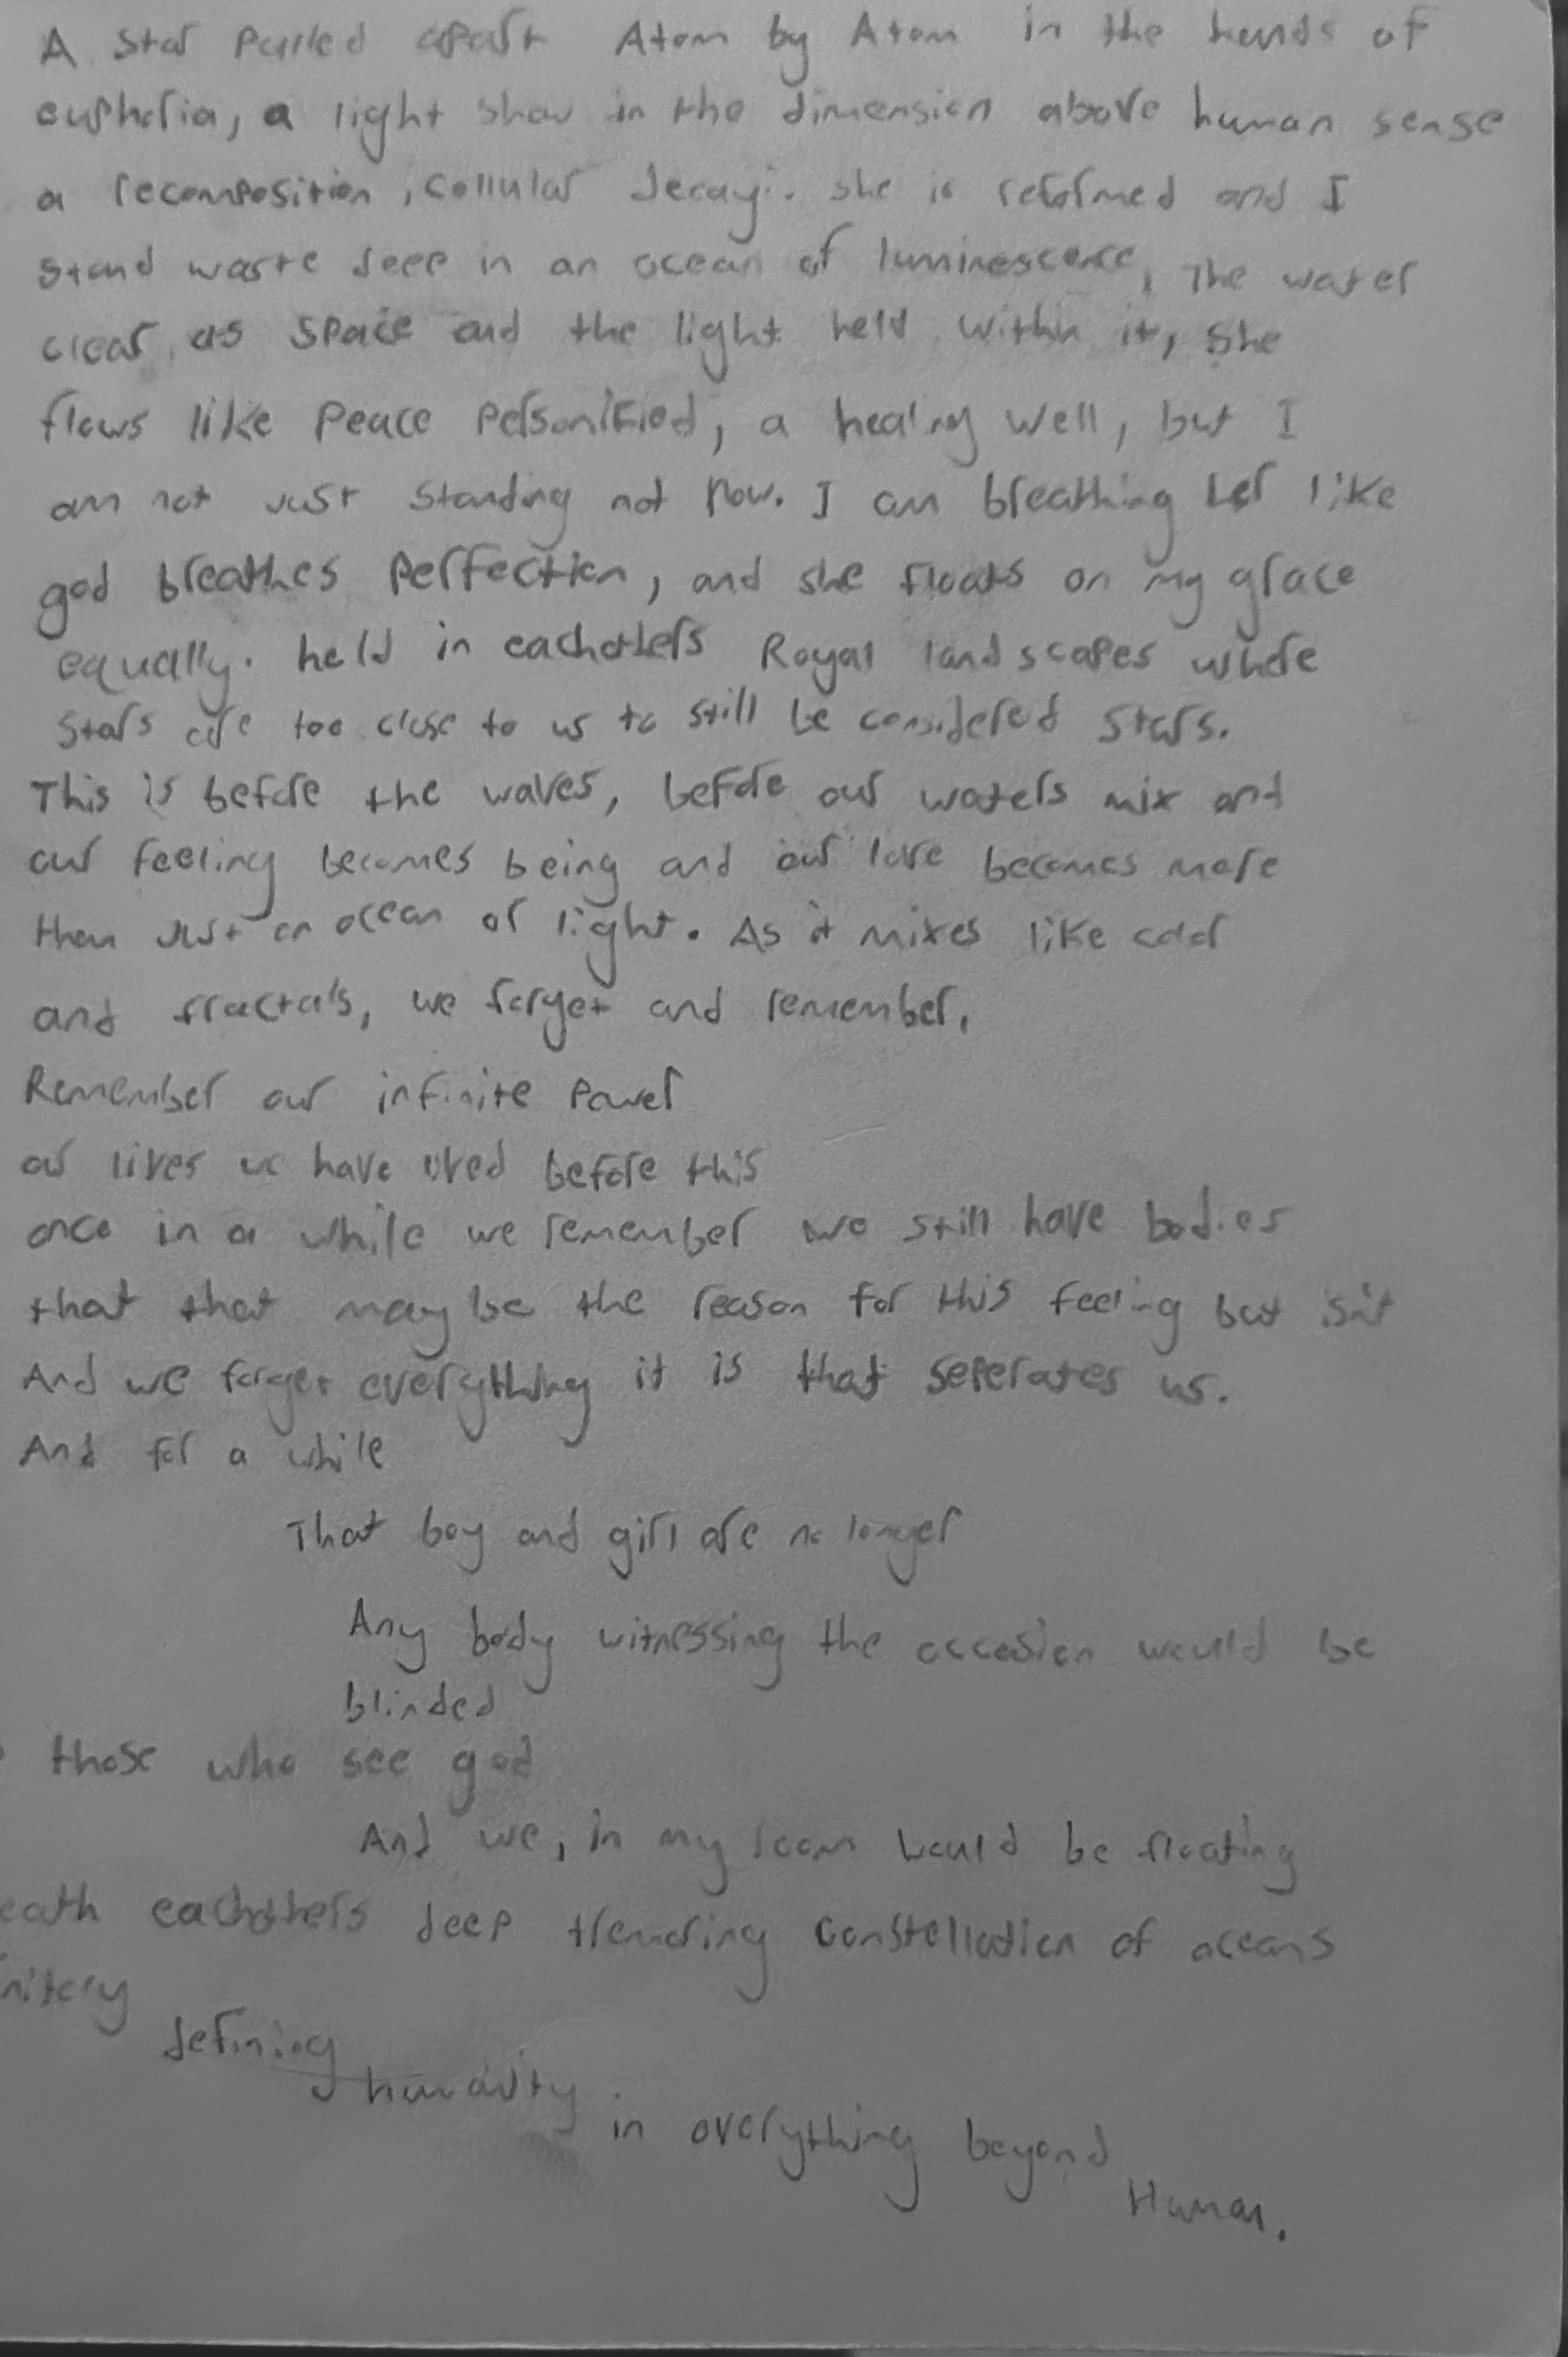 A star pulled apart Atom by Atom in the hands of
eupheria, a light show in the dimension above human sense
a recomposition, cellular decay. she is reformed and I
stand waste deep in an ocean of luminescence, The water
clear as space and the light held within it, she
flows like peace personified, a healing well, but I
am not just standing not now. I am breathing her like
god breathes perfection, and she floats on my grace
equally. held in eachothers Royal landscapes where
stars are too close to us to still be considered stars.
This is before the waves, before our waters mix and
our feeling becomes being and our love becomes more
than just an ocean of light. As it mixes like color
and fractals, we forget and remember,
Remember our infinite power
our lives we have lived before this
once in a while we remember we still have bodies
that that may be the reason for this feeling but isn't
And we forget everything it is that seperates us.
And for a while
That boy and girl are no longer
Any body witnessing the occasion would be
blinded
those who see god
And we, in my room would be floating
eath eachothers deep tremoring constellation of oceans
defining
humanity
in everything beyond
Human.